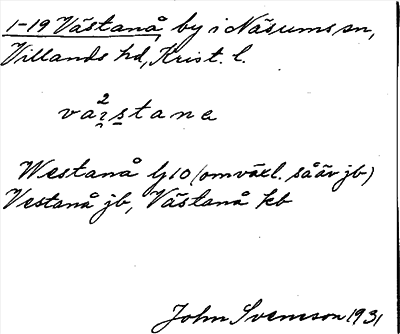 1-19 Västanå by i Näsums sn,
Villands hd, Krist. l.
Westanå lj 10 (omväxl. så äv jb)
Vestanå jb, Västanå kb
John Svensson 1931